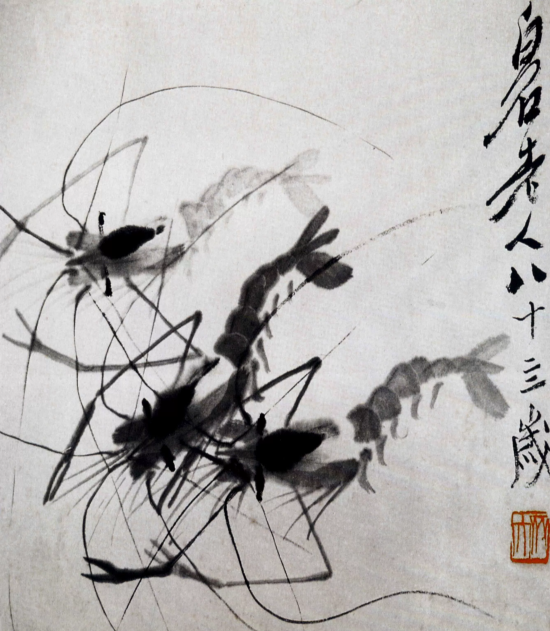 白石老人八十三歲